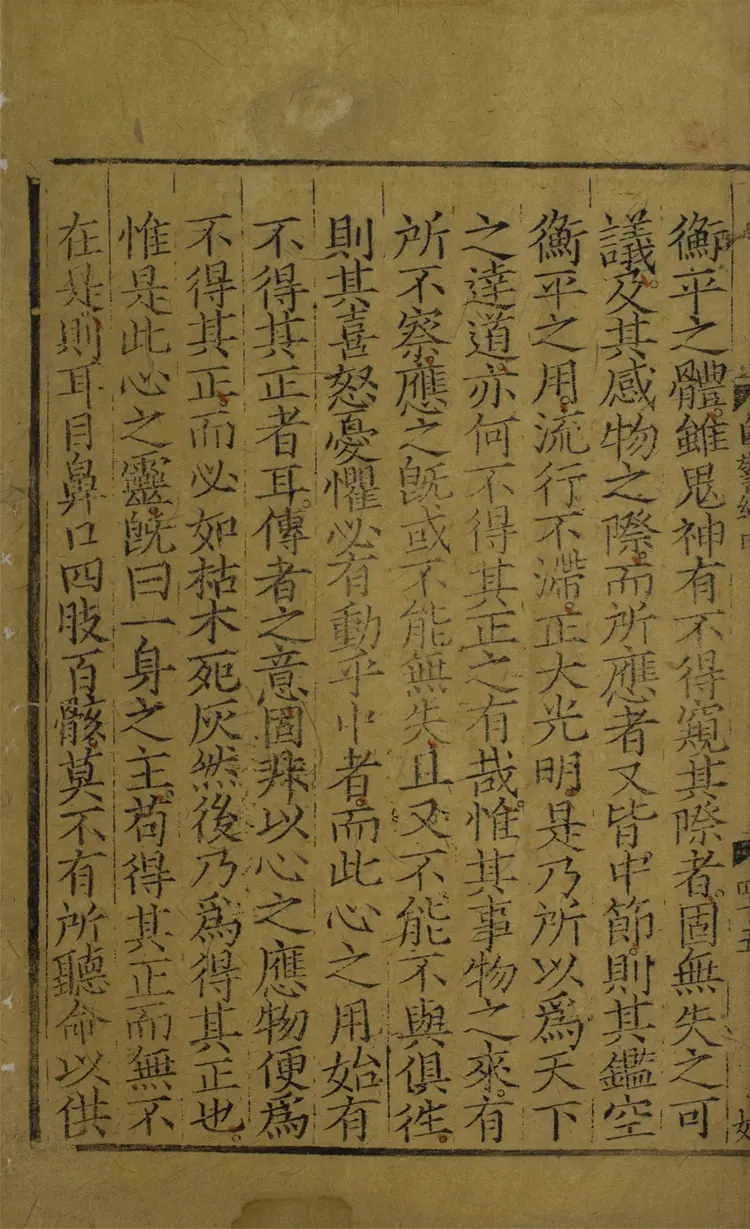 衡平之體雖鬼神有不得窺其際者固無失之可
議及其感物之際而所應者又皆中節則其鑑空
衡平之用流行不滯正大光明是乃所以爲天下
之達道亦何不得其正之有哉惟其事物之來有
所不察應之旣或不能無失且又不能不與俱徃
則其喜怒憂懼必有動乎中者而此心之用始有
不得其正者耳傳者之意固非以心之應物便爲
不得其正而必如枯木死灰然後乃爲得其正也
惟是此心之靈旣曰一身之主苟得其正而無不
在是則耳目鼻口四肢百骸莫不有所聽命以供